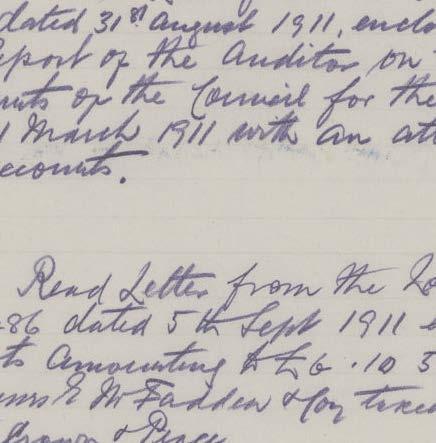 dated 31st August 1911, enclo
eport of the Auditor on
unts of the Council for the
1 March 1911 with an att
ccounts.
Read Letter from the Lo
86 dated 5th Sept 1911 e
ts amounting to £6.10 3
McFadden & Coy taken
Brown & Peace